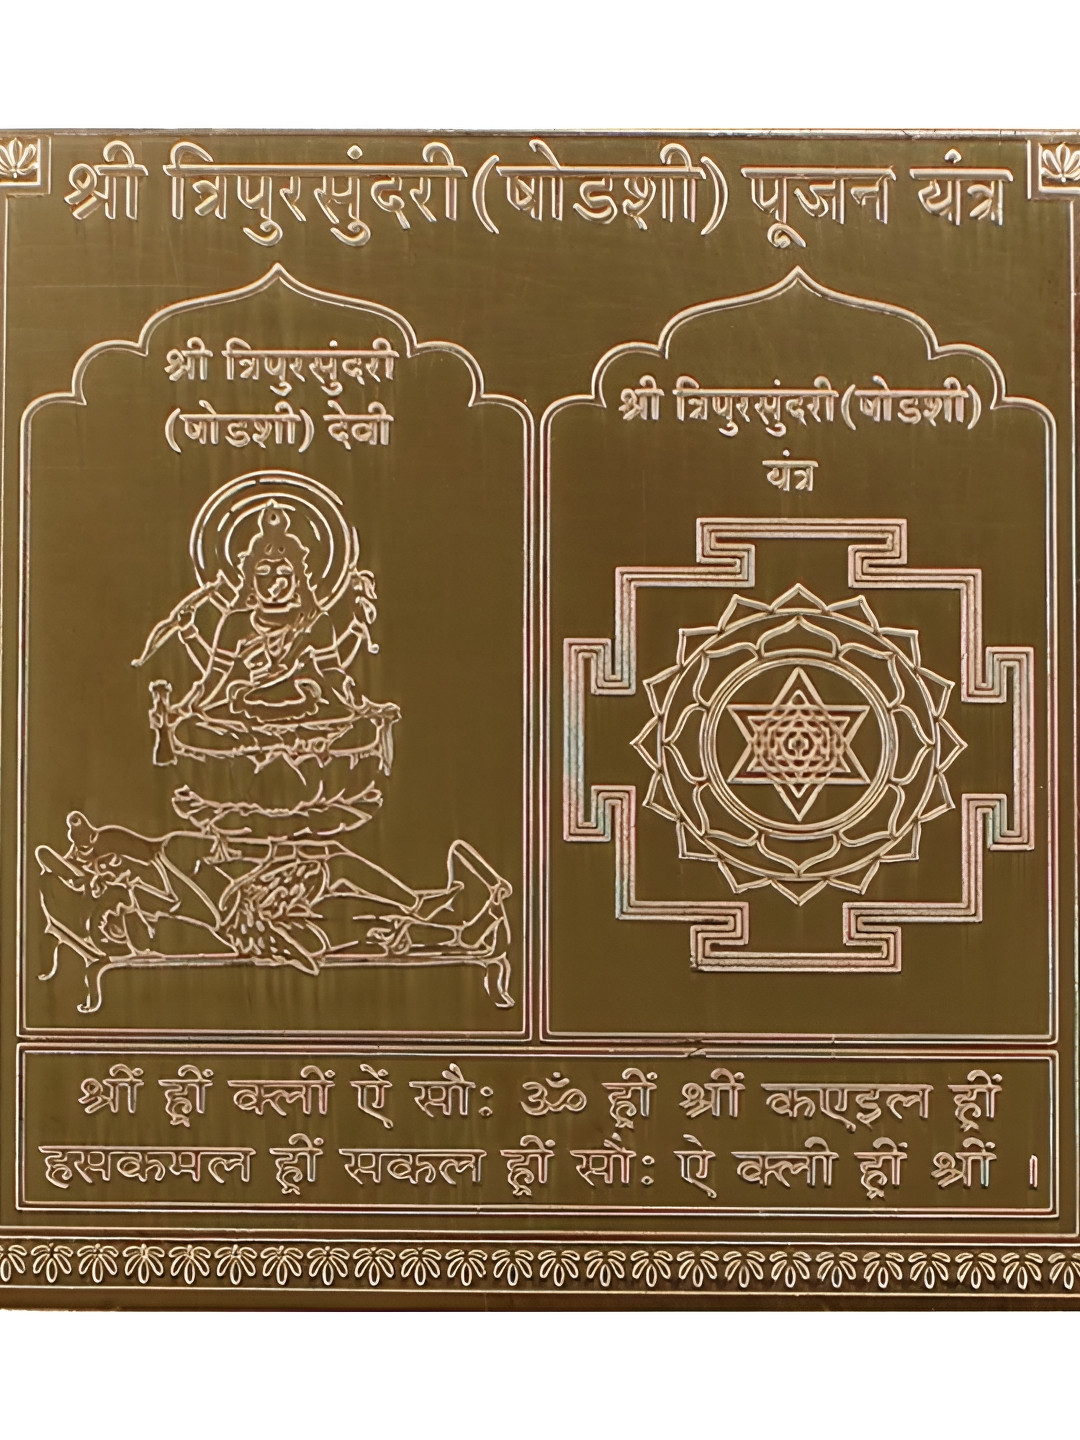 श्री त्रिपुरसुंदरी(षोडशी) पूजन यंत्र
श्री त्रिपुरसुंदरी
(षोडशी) देवी
श्री त्रिपुरसुंदरी(षोडशी)
यंत्र
श्रीं ह्रीं क्लीं ऐं सौः ॐ ह्रीं श्रीं कएइल ह्रीं
हसकमल ह्रीं सकल ह्रीं सौंः ऐ क्ली ह्रीं श्रीं ।